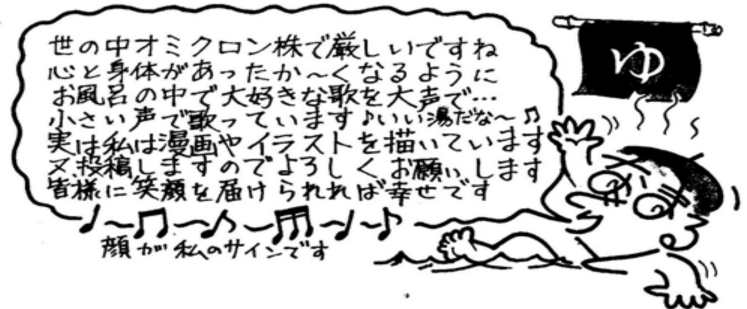 世の中オミクロン株で厳しいですね
心と身体があったか〜くなるように
お風呂の中で大好きな歌を大声で…
小さい声で歌っています♪いい湯だな〜♫
実は私は漫画やイラストを描いています
又、投稿しますのでよろしくお願いします
皆様に笑顔を届けられれば幸せです
顔が私のサインです
ゆ